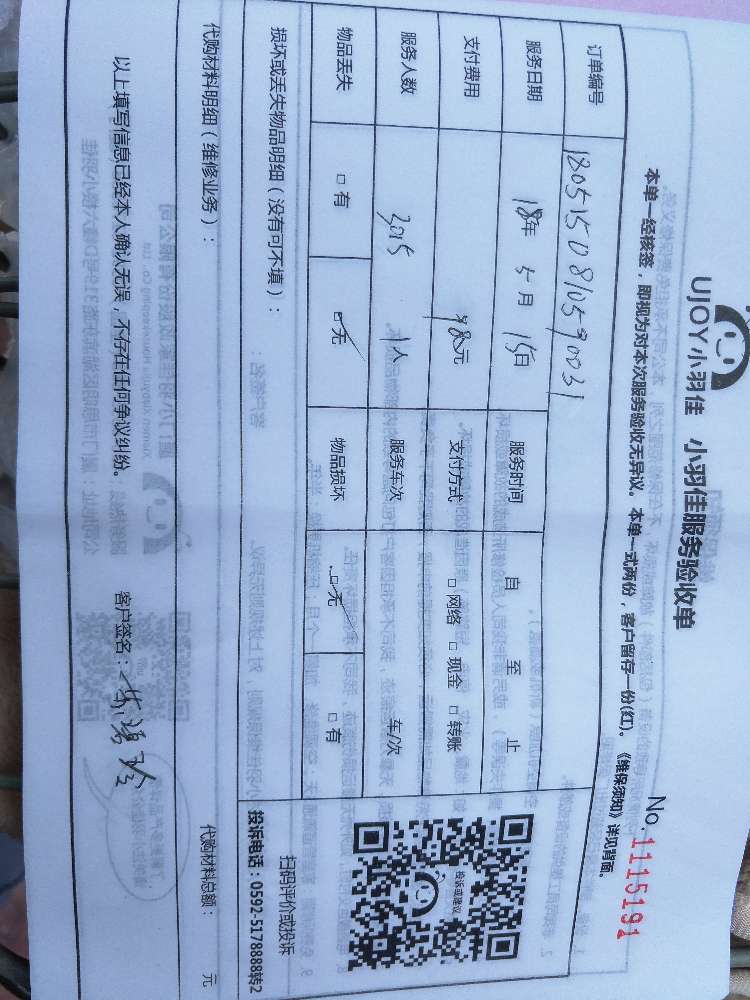 UJOY小羽佳 小羽佳服务验收单
No.1115191
本单一经核签，即视为对本次服务验收无异议。本单一式两份，客户留存一份(红)。《维保须知》详见背面。
订单编号 180515081059031
服务日期 18年 5月 15日 服务时间 自 至 止
支付费用 98元 支付方式 □网络 □现金 □转账
服务人数 3015 1人 服务车次 车/次
物品丢失 □有 □无 物品损坏 □无 □有
投诉或建议
扫码评价或投诉
投诉电话：0592-5178888转2
损坏或丢失物品明细（没有可不填）：
代购材料明细（维修业务）： 代购材料总额： 元
以上填写信息已经本人确认无误，不存在任何争议纠纷。 客户签名：